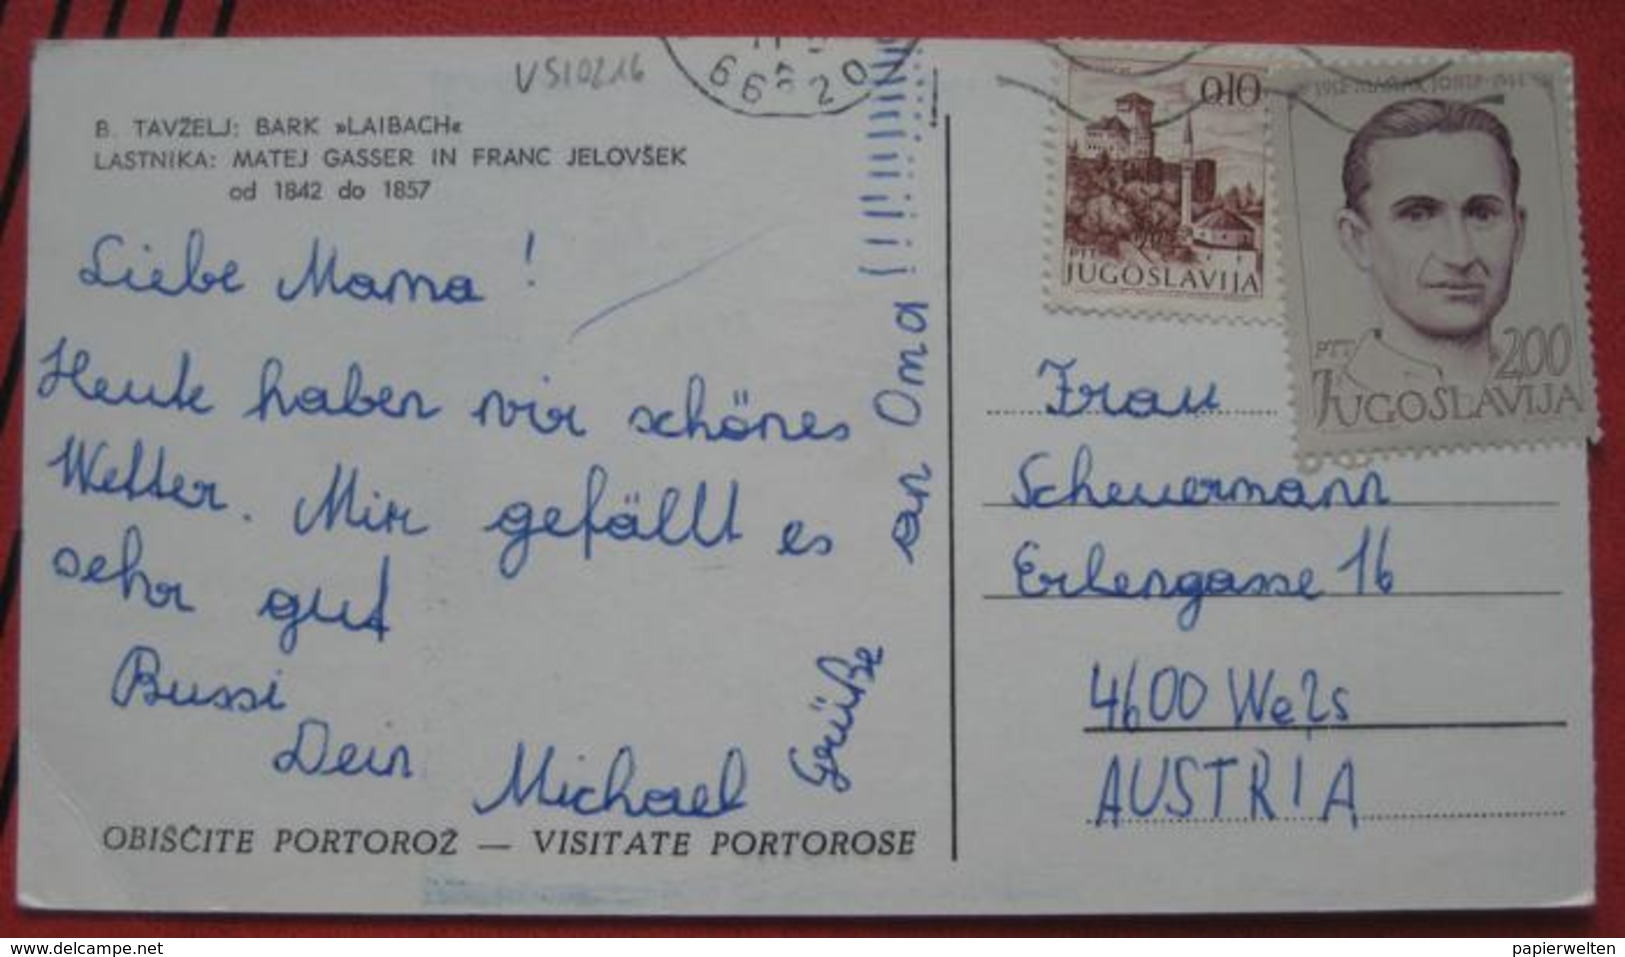 VSI0216
66320
B. TAVŽELJ: BARK »LAIBACH«
LASTNIKA: MATEJ GASSER IN FRANC JELOVŠEK
od 1842 do 1857
Liebe Mama!
Heute haben wir schönes
Wetter. Mir gefällt es
sehr gut
Bussi
Dein
Michael
Grüße
an Oma
OBIŠČITE PORTOROŽ — VISITATE PORTOROSE
0.10
PTT
JUGOSLAVIJA
PTT
2.00
JUGOSLAVIJA
Frau
Scheuermann
Erlengasse 16
4600 Wels
AUSTRIA
www.delcampe.net
papierwelten